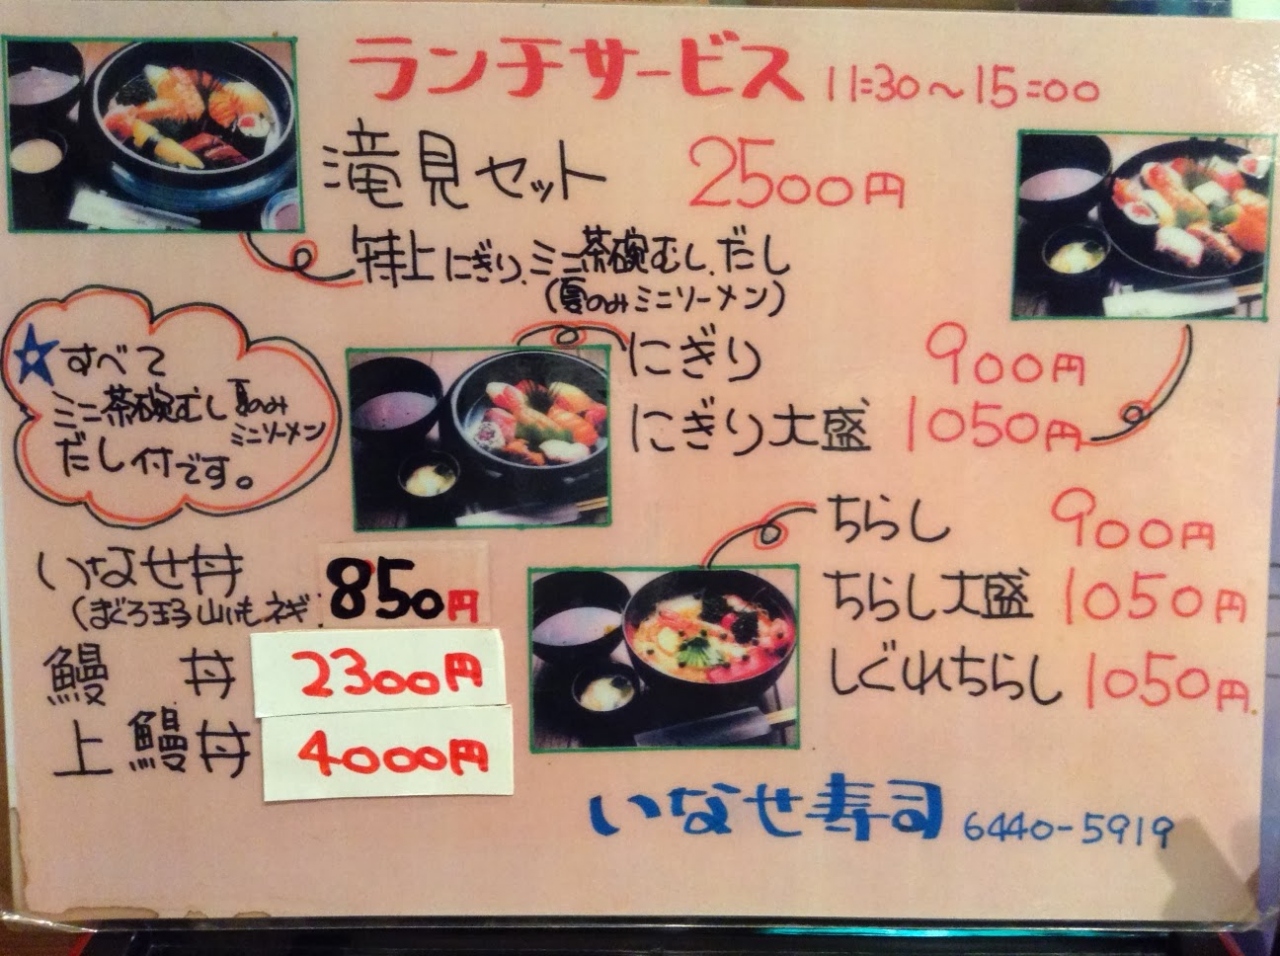 ランチサービス 11:30～15:00
滝見セット 2500円
特上にぎり、ミニ茶碗むし、だし
(夏のみミニソーメン)
★すべて
ミニ茶碗むし 夏のみ
ミニソーメン
だし付です。
にぎり 900円
にぎり大盛 1050円
ちらし 900円
ちらし大盛 1050円
しぐれちらし 1050円
いなせ丼 850円
(まぐろ玉子山いもネギ)
鰻丼 2300円
上鰻丼 4000円
いなせ寿司 6440-5919